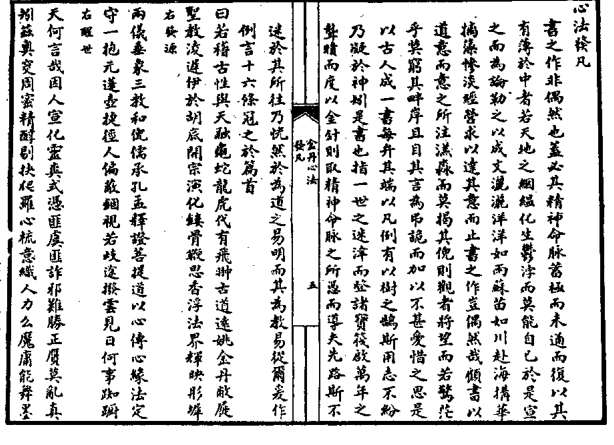 心法發凡
書之作非偶然也蓋必其精神命脈蓄極而未通而復以其
有薄於中者若天地之絪縕化生鬱浡而莫能自已於是宣
之而為論勒之以成文灑灑洋洋如雨蘇苗如川赴海搆華
摛藻慘淡經營求以達其意而止書之作豈偶然哉顧書以
道意而意之所注漾淼而莫揭其倪則觀者將望而若騖茫
乎莫窮其畔岸且自其言為弔詭而加以不甚愛惜之思是
以古人成一書每弁其端以凡例有以樹之鵠斯用志不紛
乃凝於神矧是書也指一世之迷津而登諸寶筏啟萬年之
聾瞶而度以金針則取精神命脈之所憑而導夫先路斯不
金丹心法
發凡
五
迷於其所往乃恍然於為道之易明而其為教易從爾爰作
例言十六條冠之於篇首
曰若稽古性與天融龜蛇龍虎代有飛翀古道遠姚金丹敞屣
聖教淩遲伊於胡底開宗演化鏤骨縱思香浮法界輝映彤墀
右發源
兩儀垂象三教和佗儒承孔孟釋證菩提道以心傳心緣法定
守一抱元蓬壺捷徑人偏敝錮視若歧途撥雲見日何事踟躕
右醒世
天何言哉因人宣化靈真式憑匪虞匪詐邪難勝正贋莫亂真
矧茲奧窔周密精醇剔抉爬羅心梳意織人力么魔庸能舞墨